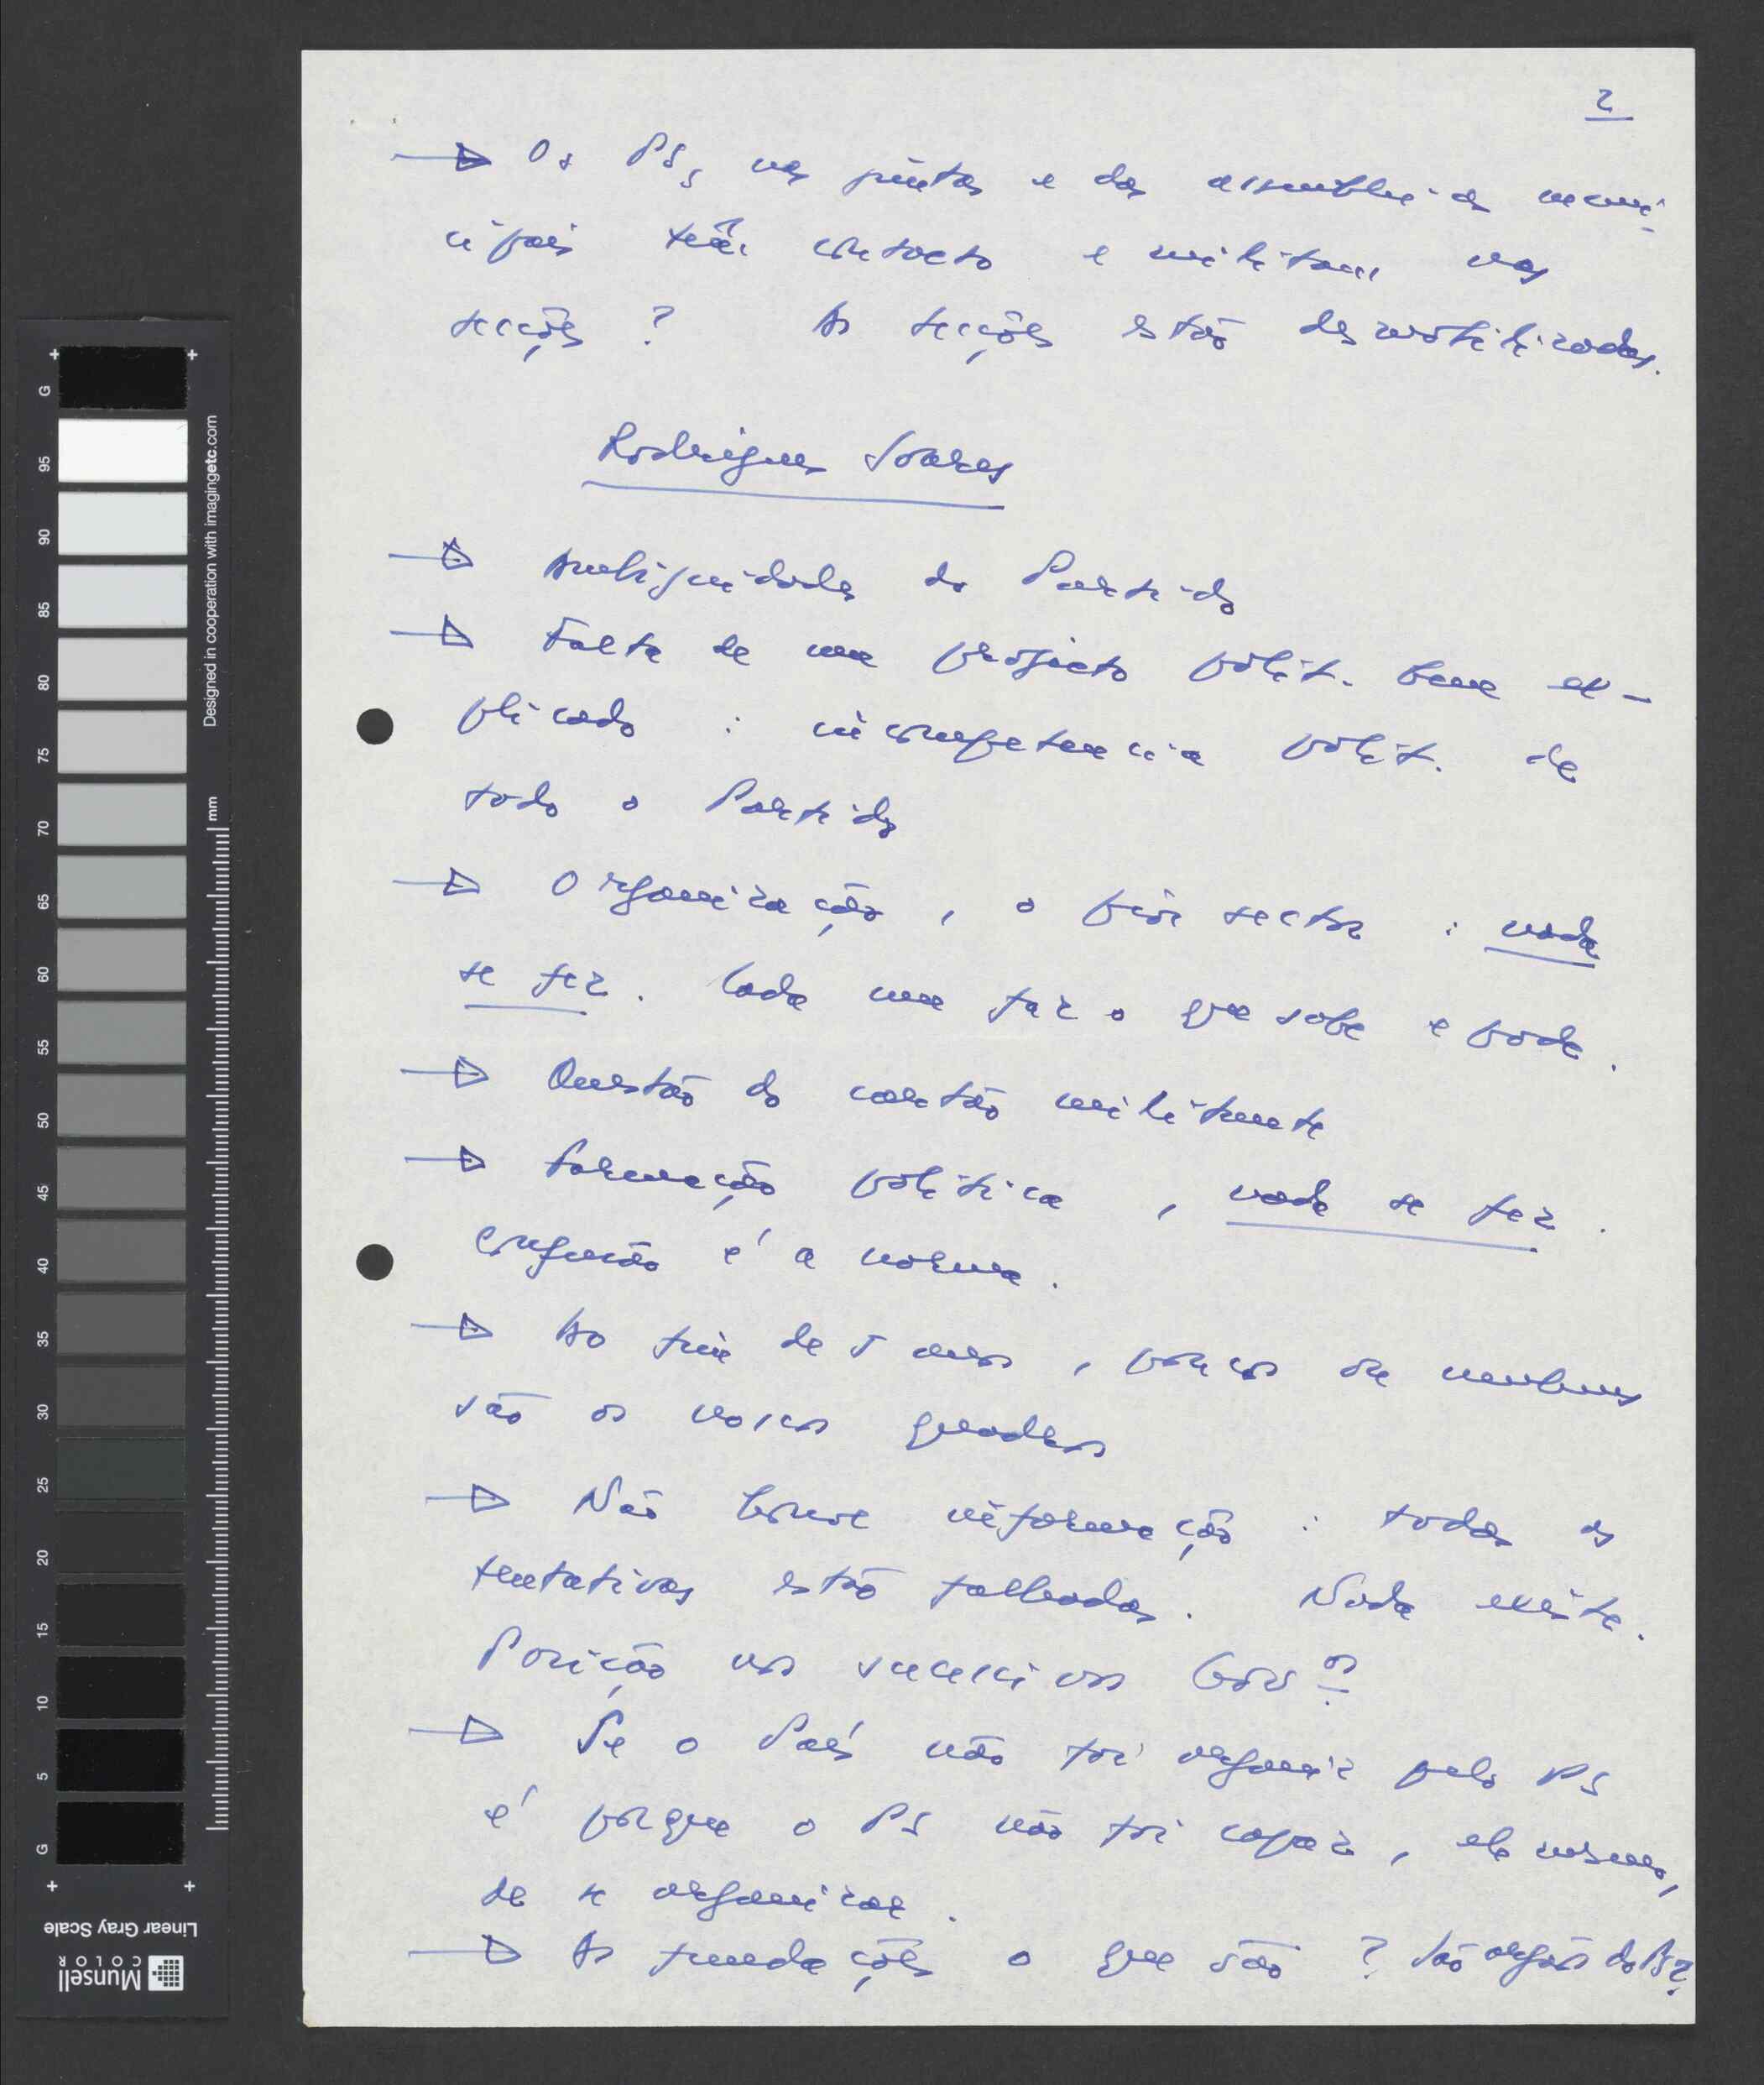 2
→ Os PSs nas juntas e das assembleias muni-
cipais têm contacto e militam nas
secções ? As secções estão desmobilizadas.
Rodrigues Soares
→ Ambiguidades do Partido
→ Falta de um projecto polít. bem ex-
plicado : incompetencia polít. de
todo o Partido
→ Organização, o pior sector : nada
se fez. Cada um faz o que sabe e pode.
→ Questão do cartão militante
→ Formação política, nada se fez.
Confusão é a norma.
→ Ao fim de 5 anos, poucos ou nenhuns
são os nossos quadros
→ Não houve informação : todas as
tentativas estão falhadas. Nada existe.
Posição nos sucessivos Govºs
→ Se o País não foi organiz pelo PS
é porque o PS não foi capaz, ele mesmo,
de se organizar.
→ As fundações o que são ? São orgãos do PS?
G
95
90
85
80
75
70
65
60
55
50
45
40
35
30
25
20
15
10
5
G
Designed in cooperation with imagingetc.com
mm
Linear Gray Scale
Munsell
COLOR